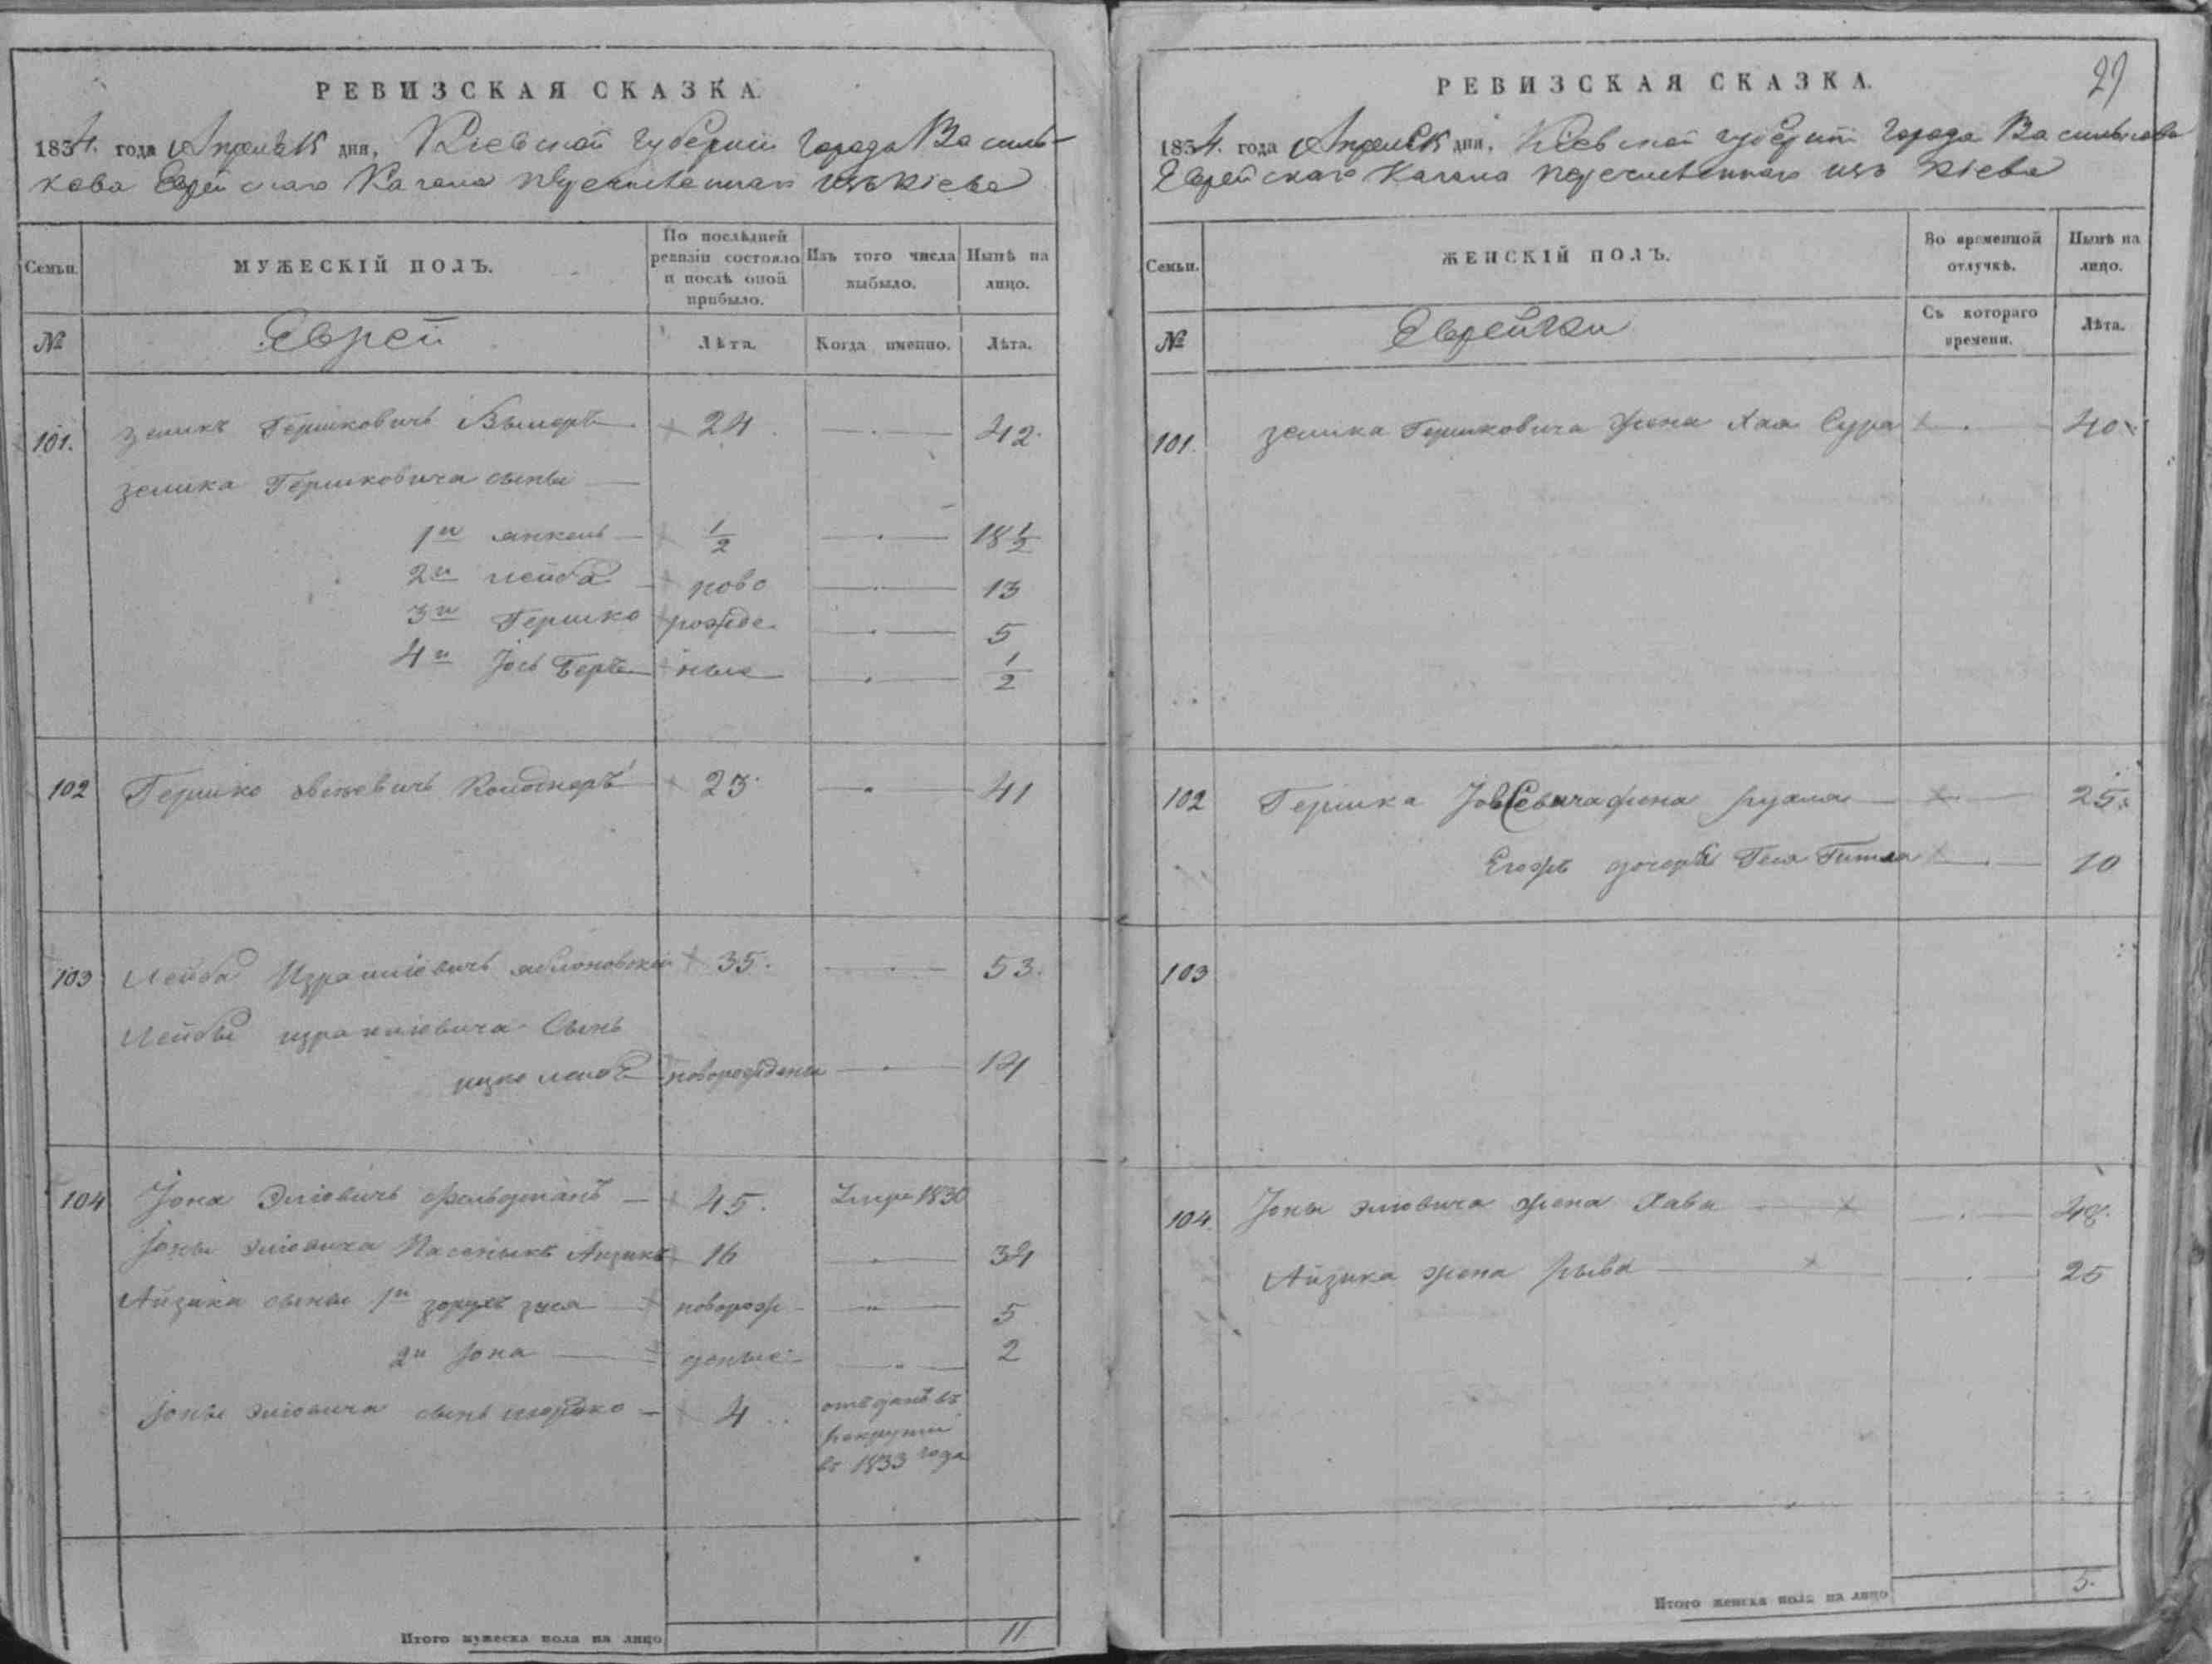 РЕВИЗСКАЯ СКАЗКА.
1834. года Апреля 15 дня, Кіевской губерніи города Василь-
кова Еврейскаго Кагала перечисленнаго изъ Кіева
Семьи.
МУЖЕСКІЙ ПОЛЪ.
По послѣдней ревизіи состояло и послѣ оной прибыло.
Изъ того числа выбыло.
Нынѣ на лицо.
№
Еврей
Лѣта.
Когда именно.
Лѣта.
101. Зеликъ Гершковичъ 24. 42.
Зелика Гершковича сыны
1й Янкель ½ 18½
2й Лейба ново 13
3й Гершко рожде- 5
4й Іось Беръ ные ½
102 Гершко Колоднеръ 23. 41
103 Лейба Израилiовичъ Яблоновскій 35. 53.
Лейбы Израилiовича Сынъ
Ицко Лейбъ новорожденный 14
104 Іона Эліовичъ Фельдманъ 45. Умре 1830
Іоны Эліовича Пасенькъ Айзикъ 16 34
Айзика сыны 1й новорож- 5
2й Іона денные 2
Іоны Эліовича сынъ Мошко 4 отъданъ въ
рекруты
въ 1833 года
Итого мужеска пола на лицо 11
29
РЕВИЗСКАЯ СКАЗКА.
1834. года Апреля 15 дня, Кіевской губерніи города Василькова
Еврейскаго Кагала перечисленнаго изъ Кіева
Семьи.
ЖЕНСКІЙ ПОЛЪ.
Во временной отлучкѣ.
Нынѣ на лицо.
№
Еврейки
Съ котораго времени.
Лѣта.
101. Зелика Гершковича жена Хая Сура 40.
102 Гершка Іовсевича жена Рухля 25.
Егожъ дочерь Геся Гитля 10
103
104. Іоны Эліовича жена Хава 48.
Айзика жена Рыва 25
Итого женска пола на лицо 5.